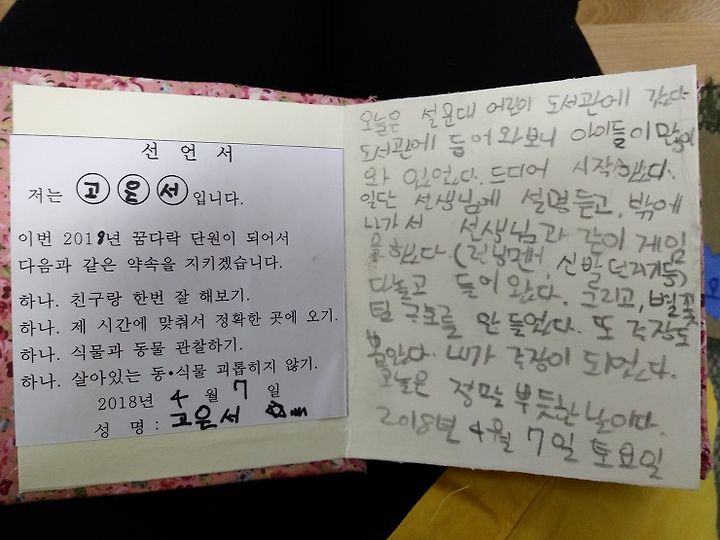 선 언 서
저는 고 은 서 입니다.
이번 2019년 꿈다락 단원이 되어서
다음과 같은 약속을 지키겠습니다.
하나. 친구랑 한번 잘 해보기.
하나. 제 시간에 맞춰서 정확한 곳에 오기.
하나. 식물과 동물 관찰하기.
하나. 살아있는 동•식물 괴롭히지 않기.
2018년 4 월 7 일
성 명 : 고은서
오늘은 어린이 도서관에 갔다
도서관에 들어와보니 아이들이 많이
와 있었다. 드디어 시작했다.
일단 선생님에 설명 듣고, 밖에
나가서 선생님과 같이 게임
을 했다. (런닝맨, 신발 던지기 등)
다놀고 들어 왔다. 그리고,
만들었다. 또
뽑았다. 내가 되었다.
오늘은 정말 뿌듯한 날이다.
2018년 4월 7일 토요일